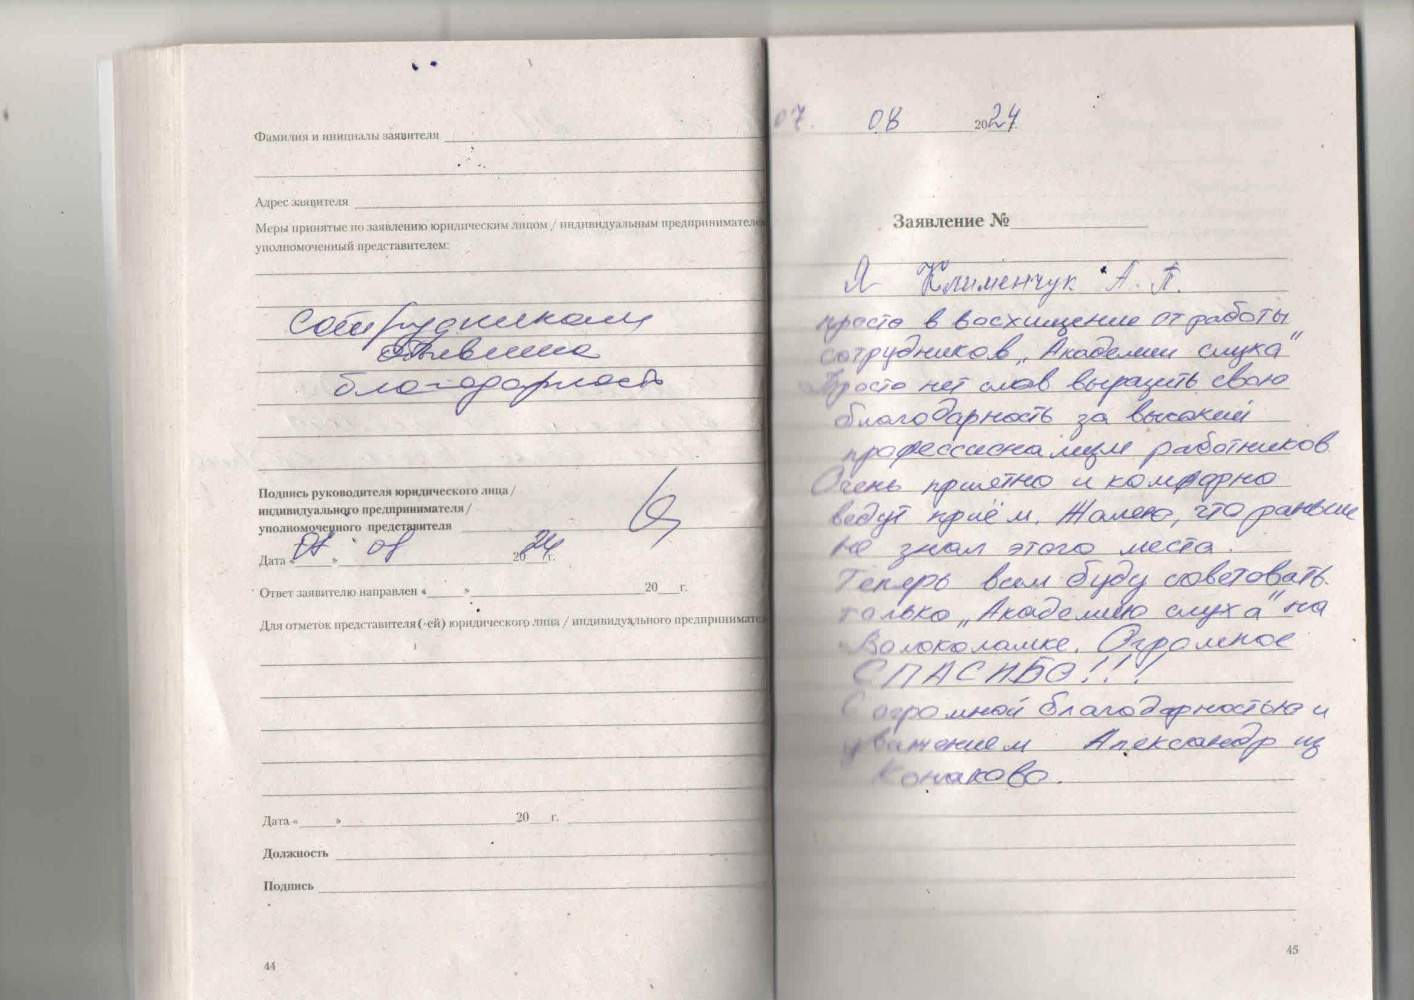 Фамилия и инициалы заявителя
Адрес заявителя
Меры принятые по заявлению юридическим лицом / индивидуальным предпринимателем
уполномоченный представителем:
сотрудникам
объявлена
благодарность
Подпись руководителя юридического лица /
индивидуального предпринимателя /
уполномоченного представителя
Дата «07» 08 2024г.
Ответ заявителю направлен «      »      20   г.
Для отметок представителя (-ей) юридического лица / индивидуального предпринимате
Дата «      »      20   г.
Должность
Подпись
44
07. 08 2024
Заявление №
Я Клименчук А. П.
просто в восхищение от работы
сотрудников „Академии слуха"
Просто нет слов выразить свою
благодарность за высокий
профессионализм работников
Очень приятно и комфорно
ведут приём. Жалею, что раньше
не знал этого места.
Теперь всем буду советовать
только „Академию слуха" на
Волоколамке. Огромное
СПАСИБО!!!
С огромной благодарностью и
уважением Александр из
Конаково.
45